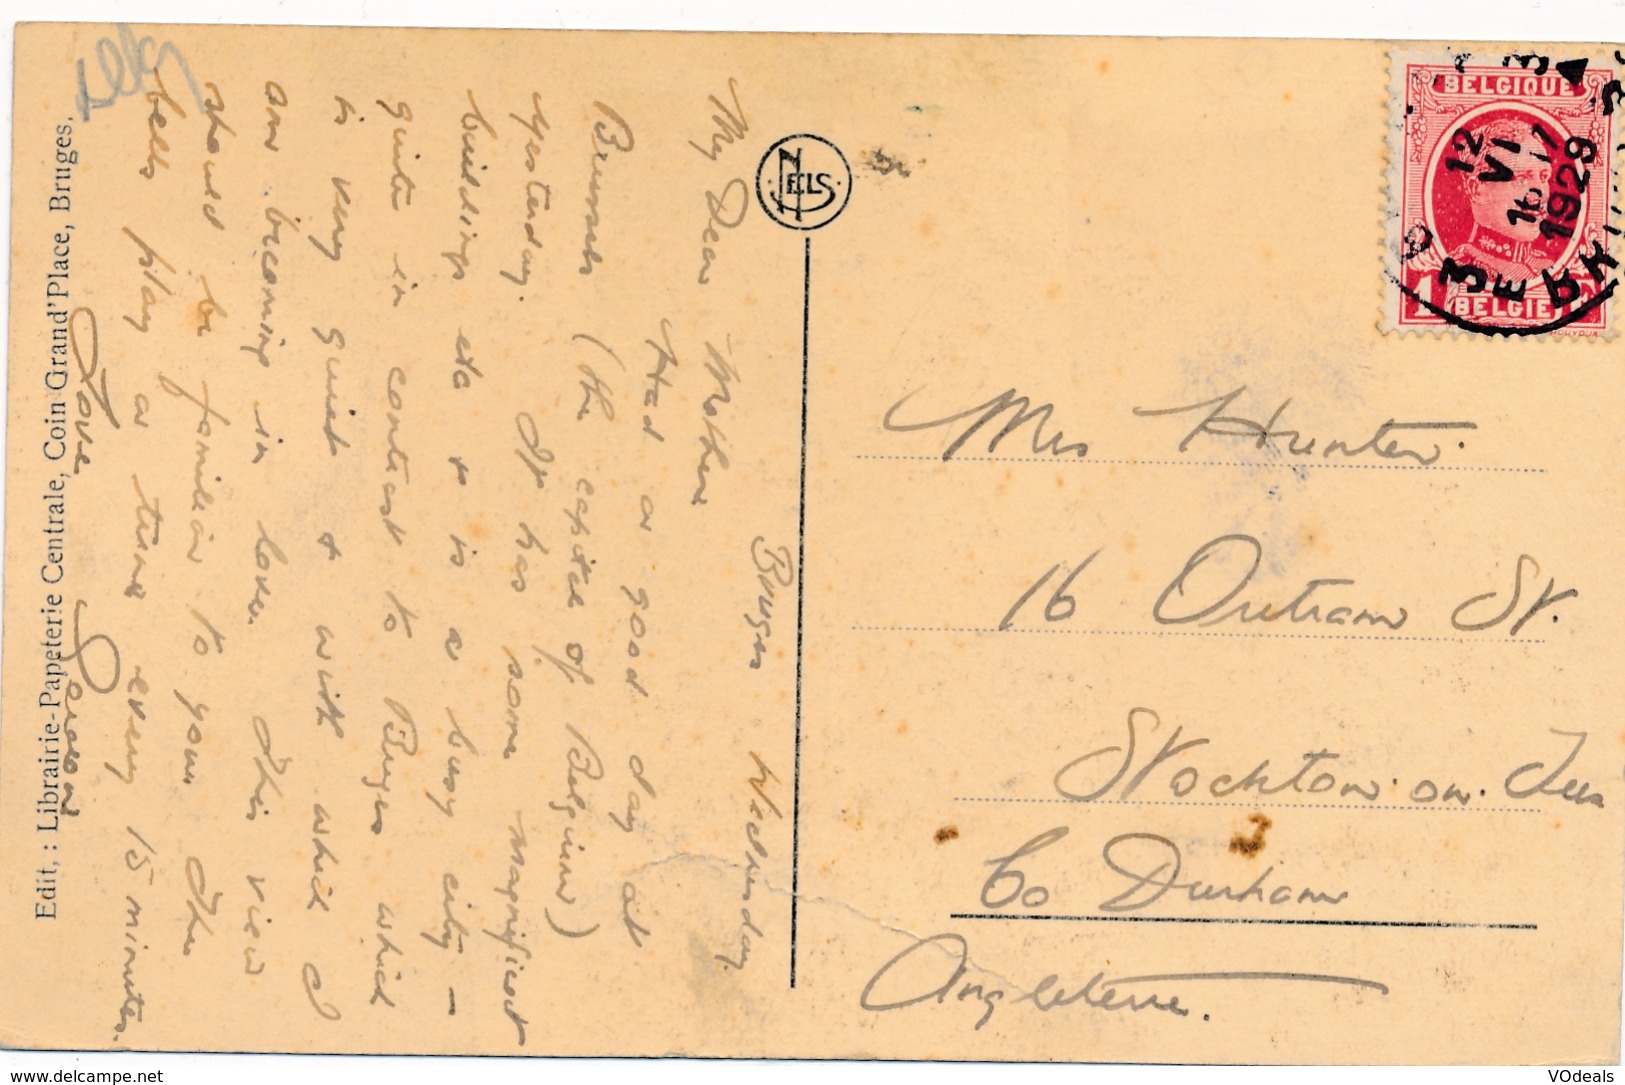 Bruges Wednesday.
My Dear Mother
Had a good day at
Brussels (the capital of Belgium)
yesterday. It has some magnificent
buildings etc & is a busy city –
quite in contrast to Bruges which
is very quiet & with which I
am becoming in love. This view
should be familiar to you. The
bells play a tune every 15 minutes.
Love
Edit, : Librairie-Papeterie Centrale, Coin Grand'Place, Bruges,
NELS
BELGIQUE
1 BELGIE 1
12
VI
1929
Mrs Hunter.
16 Outram St.
Stockton-on-Tees
Co Durham
Angleterre.
www.delcampe.net
VOdeals